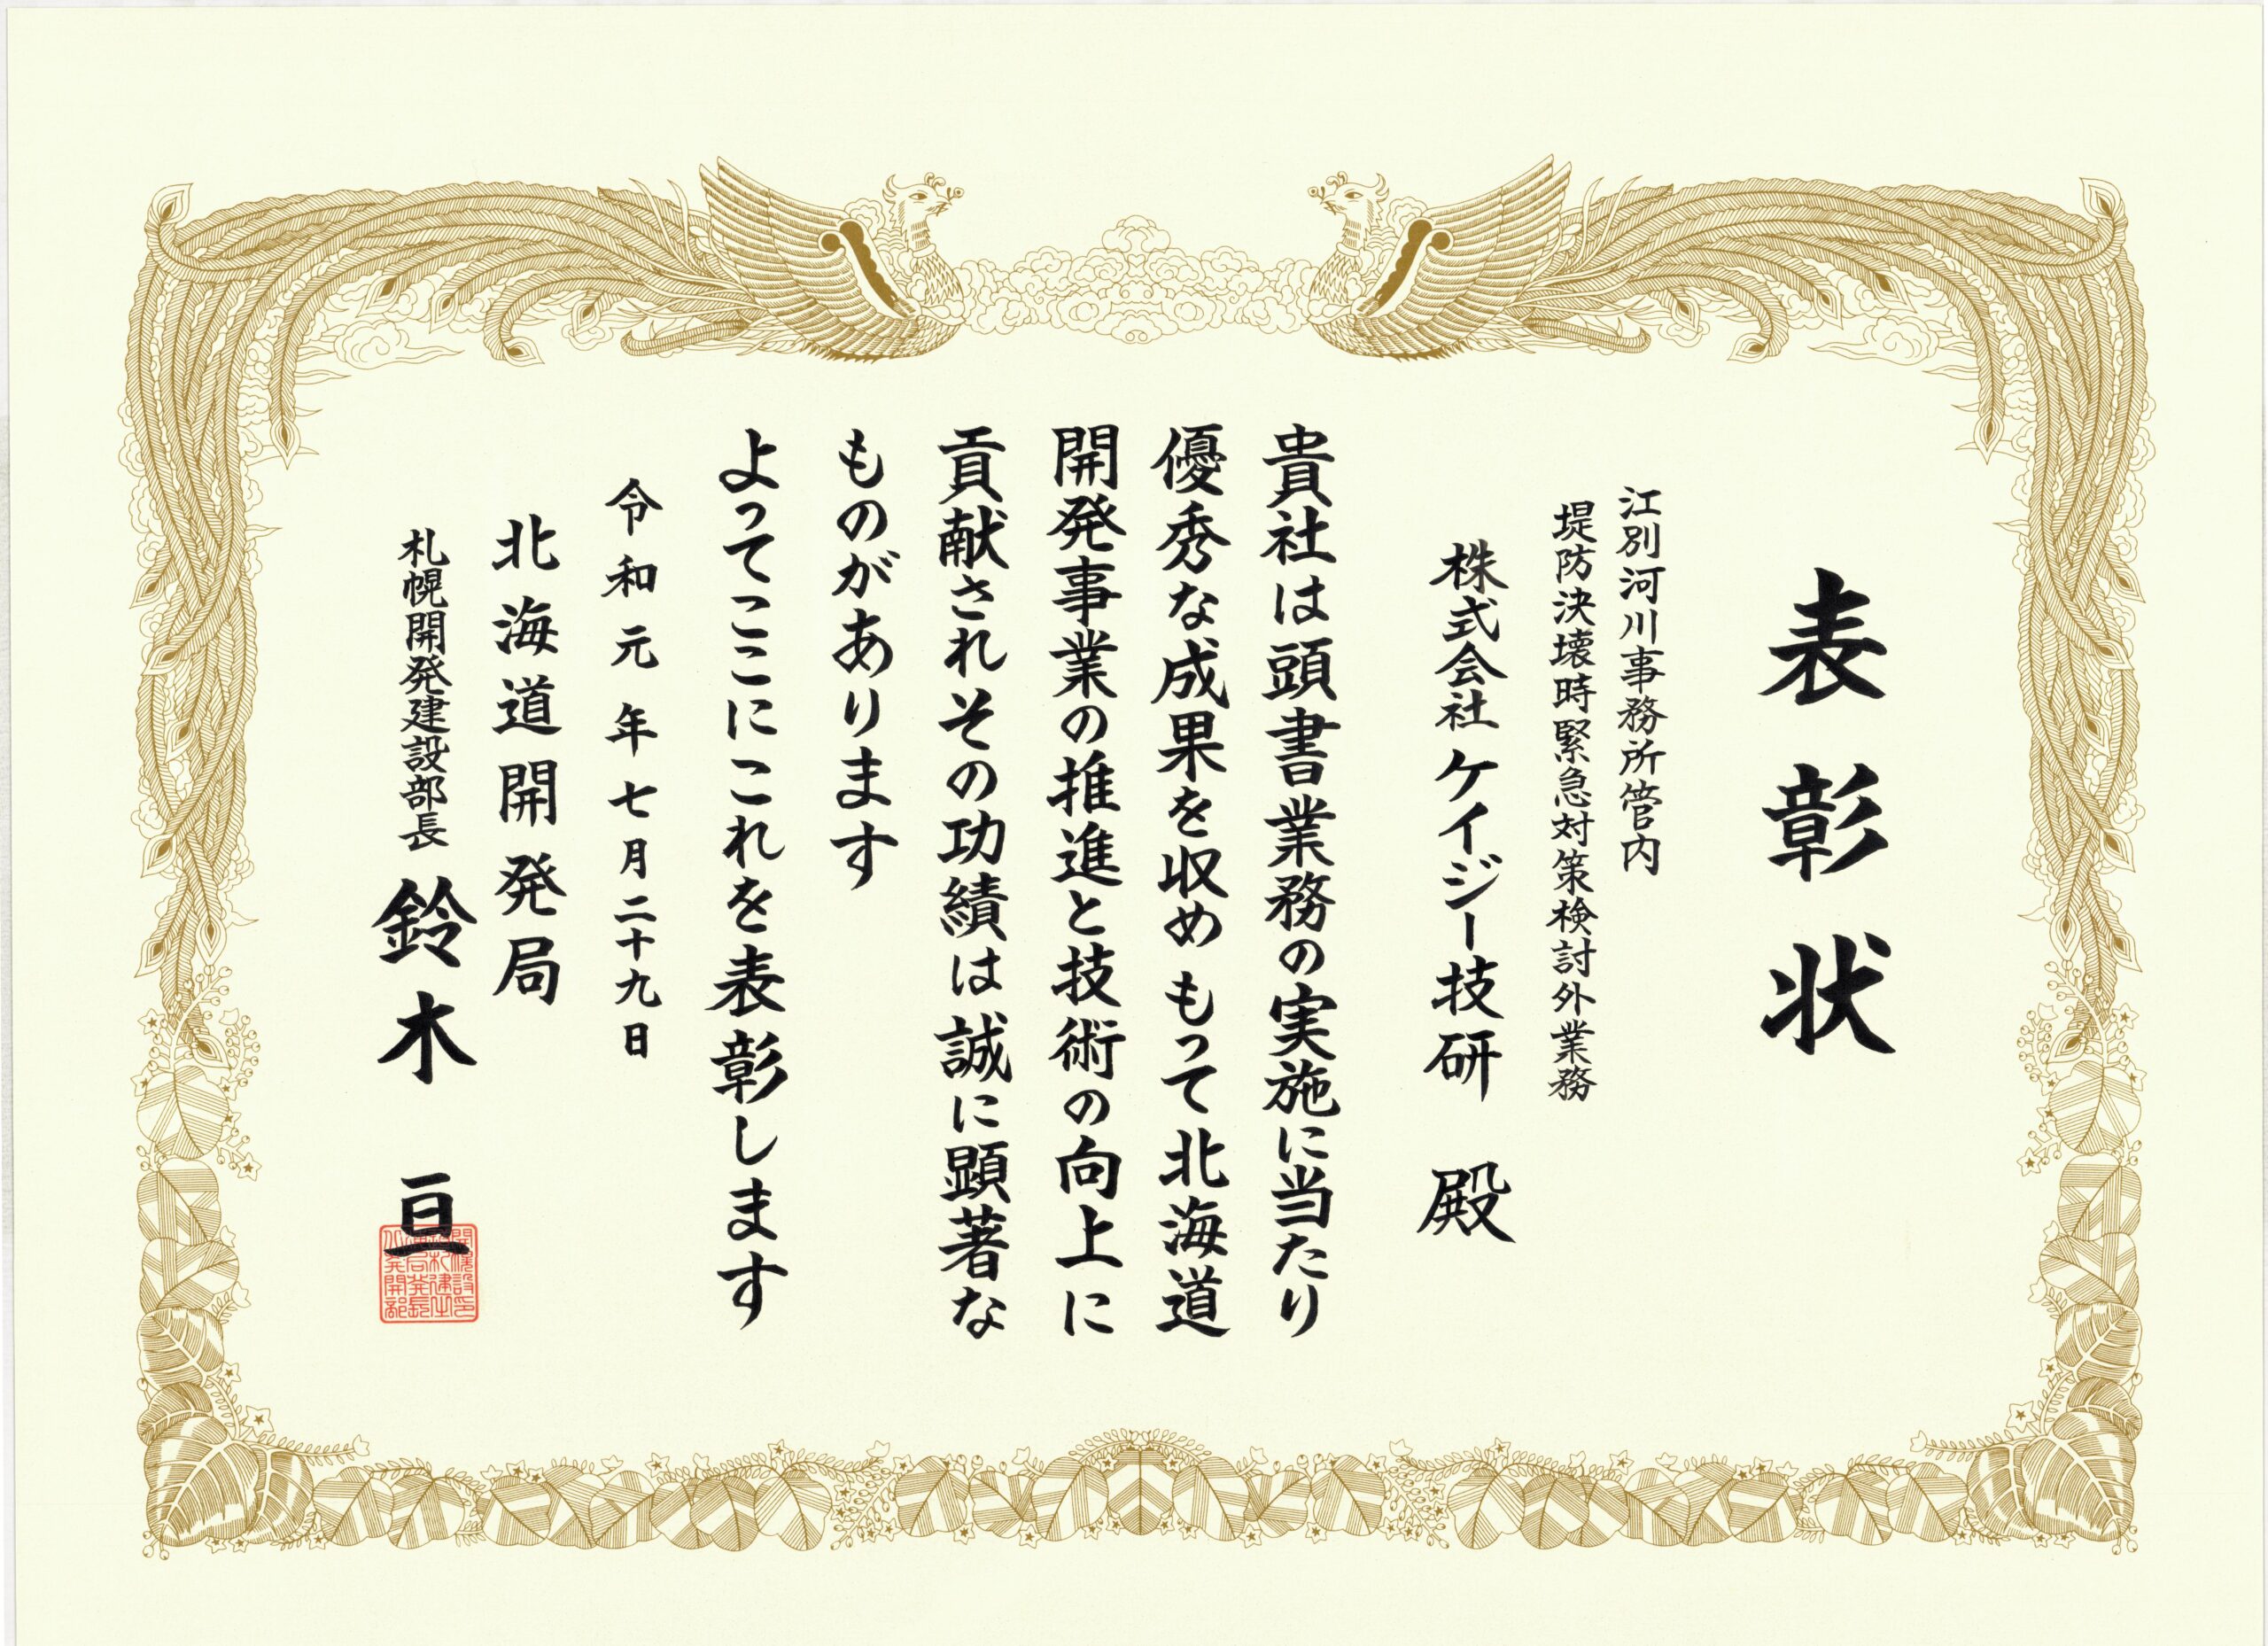 表彰状
江別河川事務所管内
堤防決壊時緊急対策検討外業務
株式会社ケイジー技研 殿
貴社は頭書業務の実施に当たり
優秀な成果を収めもって北海道
開発事業の推進と技術の向上に
貢献されその功績は誠に顕著な
ものがあります
よってここにこれを表彰します
令和元年七月二十九日
北海道開発局
札幌開発建設部長 鈴木 亘